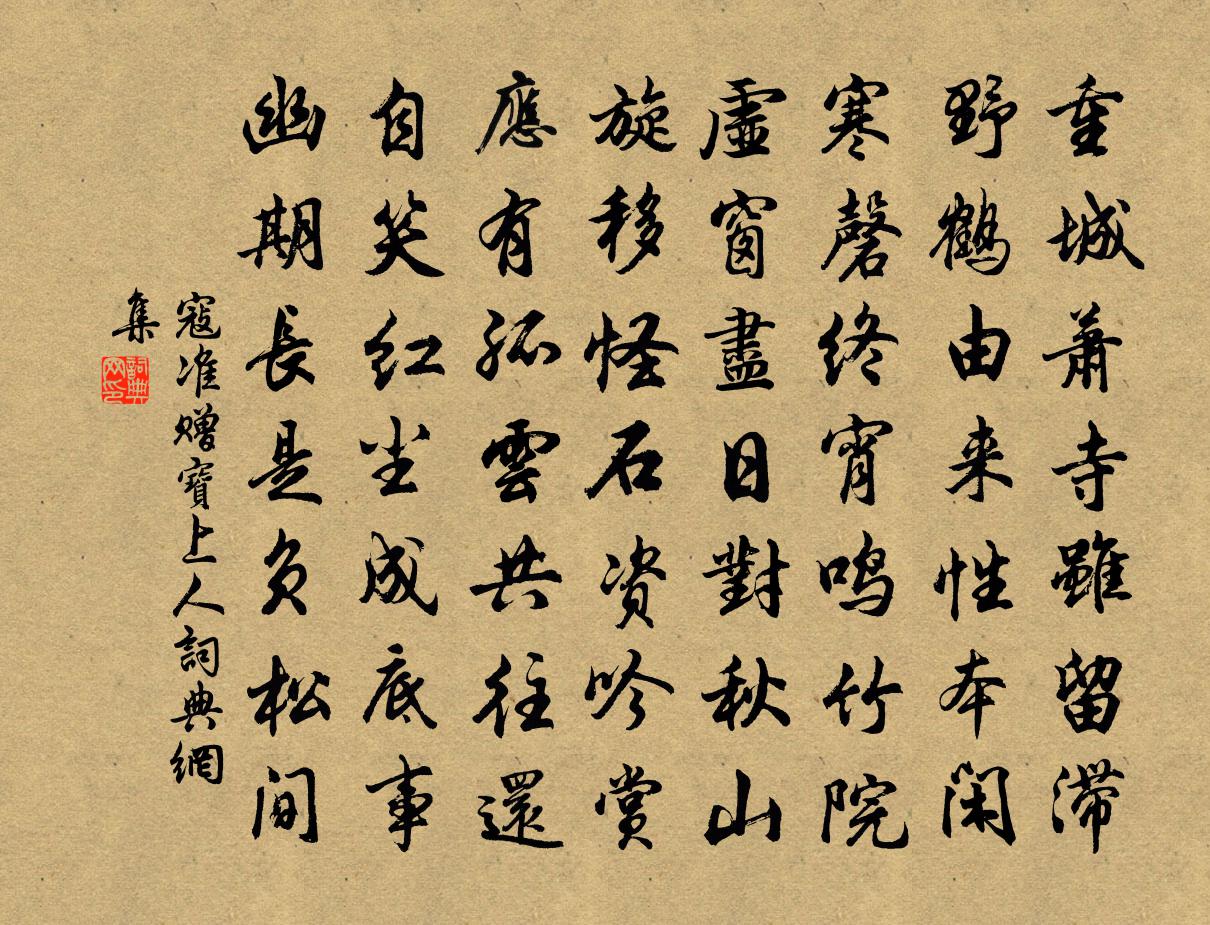 重城蕭寺雖留滯
野鶴由来性本閑
寒磬終宵鳴竹院
虛窗盡日對秋山
旋移怪石資吟賞
應有孤雲共往還
自笑红尘成底事
幽期長是负松间
寇准赠寶上人詞典網
集
詞典
网印